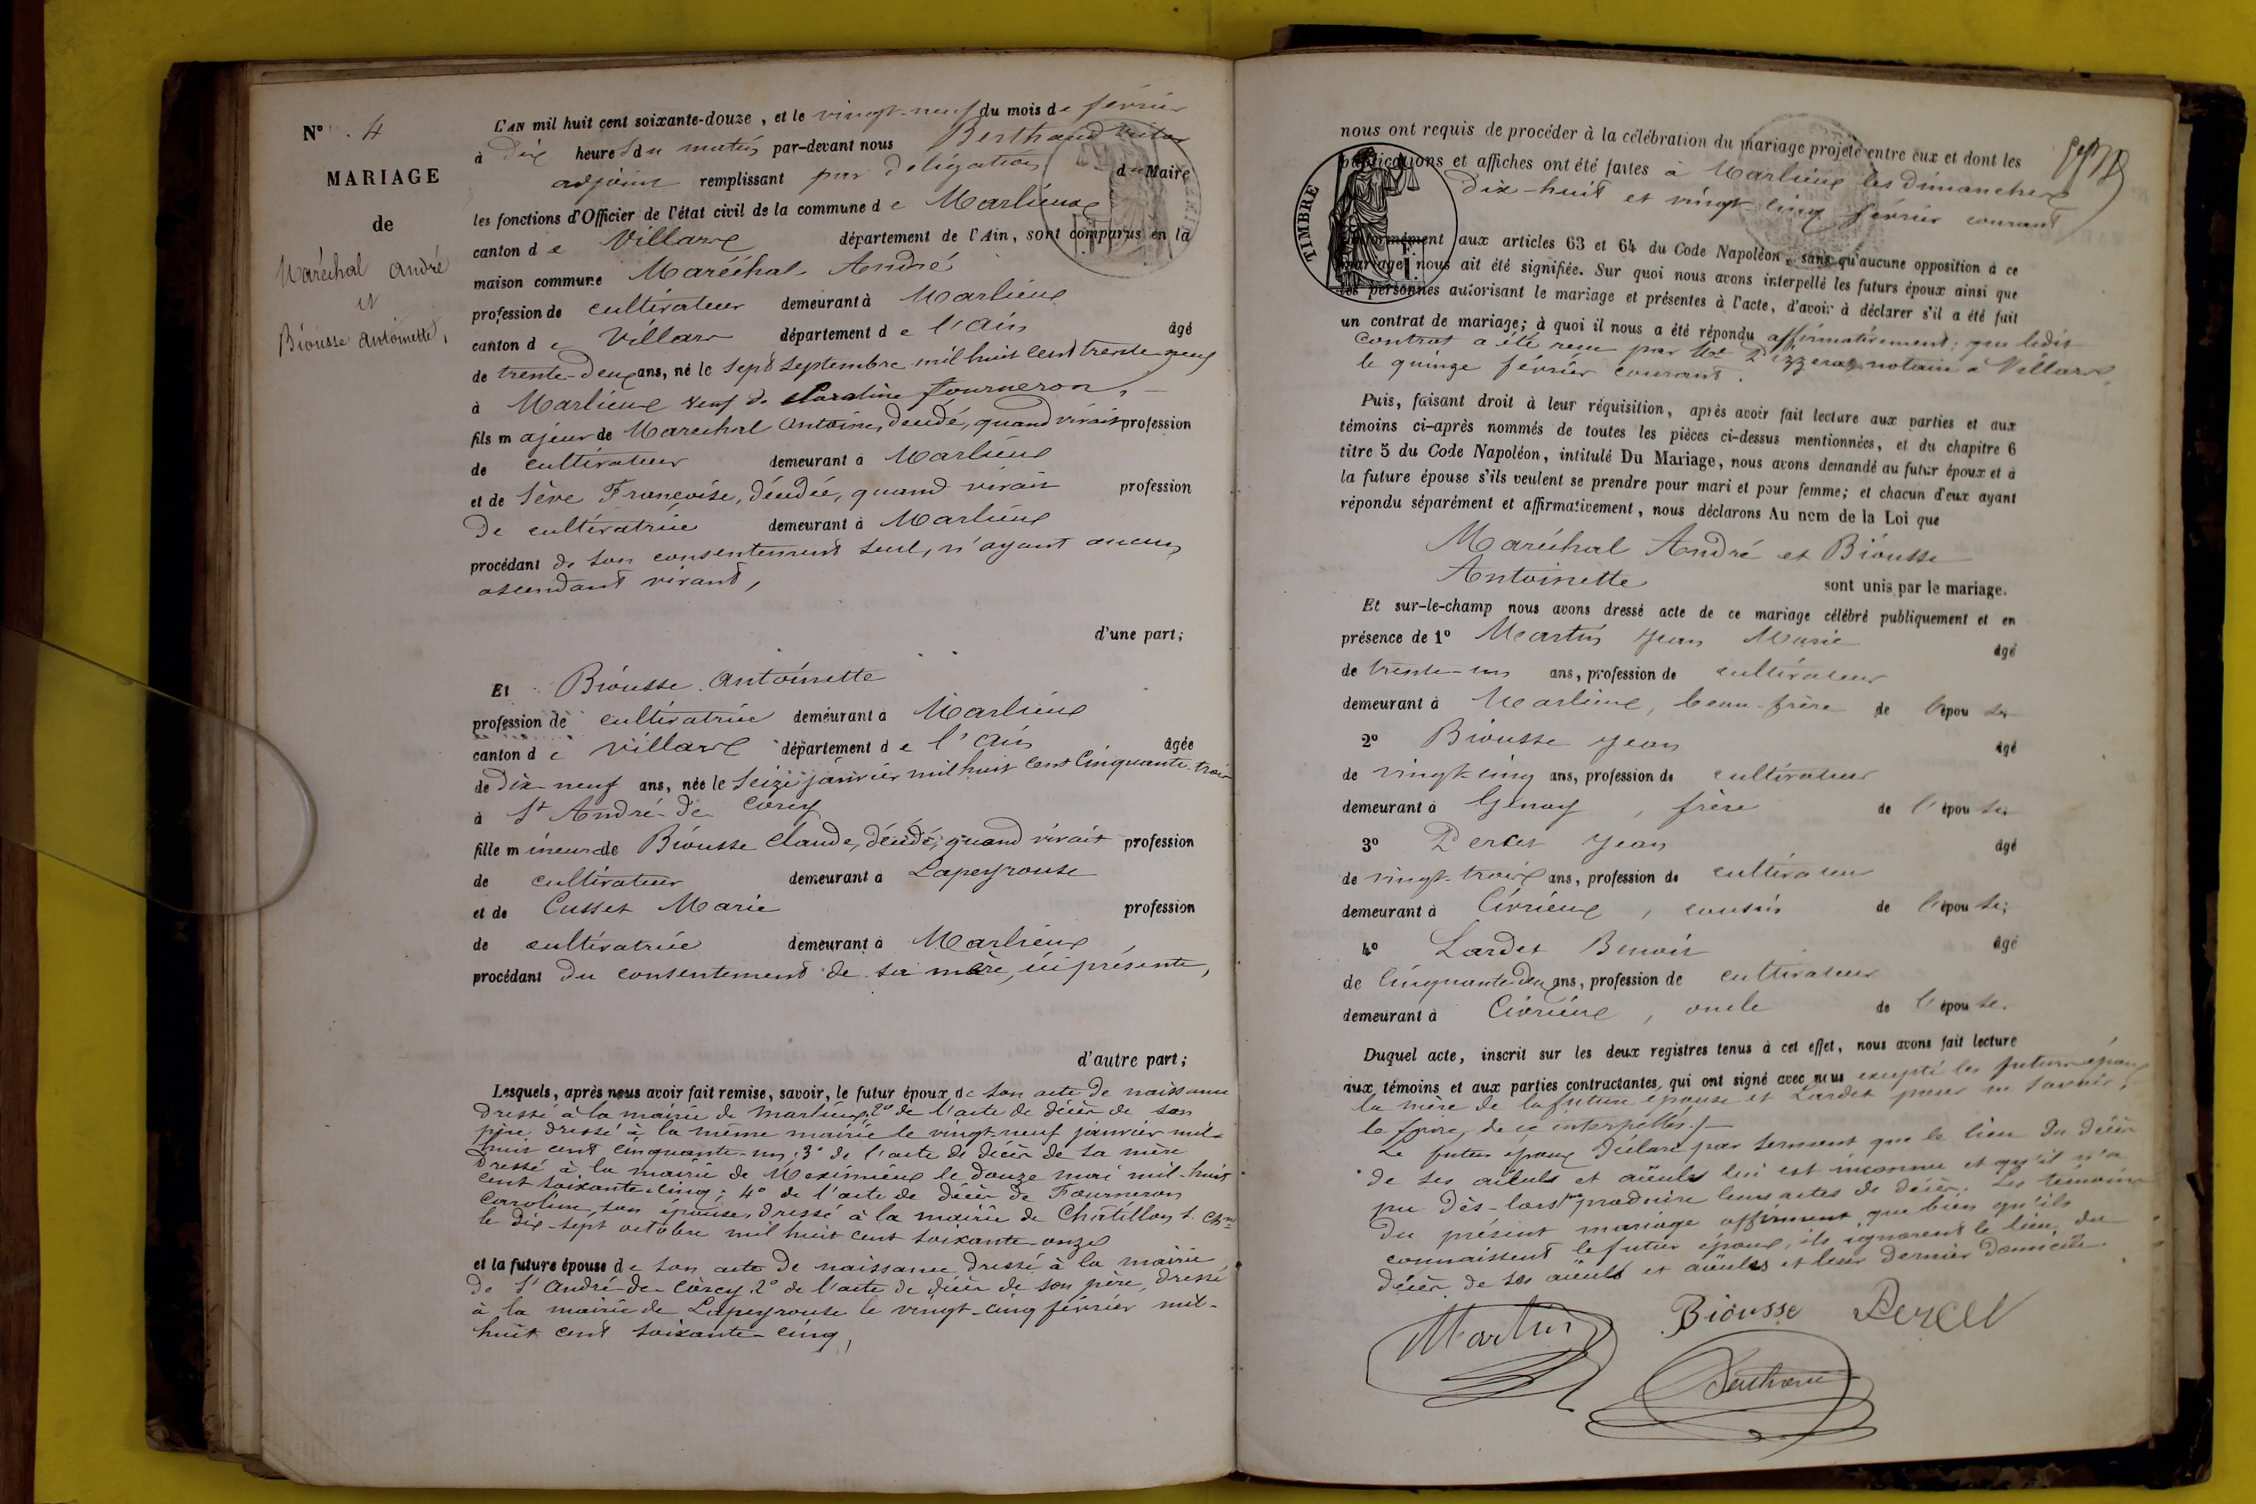 N° 4
MARIAGE
de
Maréchal André
et
Biousse Antoinette,
L'AN mil huit cent soixante-douze, et le vingt-neuf du mois de février
à Dix heures du matin par-devant nous Berthaud
adjoint remplissant par délégation du Maire
les fonctions d'Officier de l'état civil de la commune de Marlieux
canton de Villars département de l'Ain, sont comparus en la
maison commune Maréchal André
profession de cultivateur demeurant à Marlieux
canton de Villars département de l'Ain âgé
de trente-deux ans, né le sept septembre mil huit cent trente-neuf
à Marlieux veuf de Caroline Fourneron,
fils majeur de Marechal Antoine, décédé, quand vivait profession
de cultivateur demeurant à Marlieux
et de Sève Françoise, décédée, quand vivait profession
De cultivatrice demeurant à Marlieux
procédant de son consentement seul, n'ayant aucun
ascendant vivant,
d'une part;
Et Biousse Antoinette
profession de cultivatrice demeurant à Marlieux
canton de Villars département de l'Ain âgée
de Dix-neuf ans, née le seize janvier mil huit cent cinquante-trois
à St André-de-Corcy
fille mineure de Biousse Claude, décédé, quand vivait profession
de cultivateur demeurant à Lapeyrouse
et de Cusset Marie profession
de cultivatrice demeurant à Marlieux
procédant du consentement de sa mère, ici présente,
d'autre part;
Lesquels, après nous avoir fait remise, savoir, le futur époux de son acte de naissance
dressé à la mairie de Marlieux, 2° de l'acte de décès de son
père dressé à la même mairie le vingt-neuf janvier mil-
huit cent cinquante-un; 3° de l'acte de décès de sa mère
dressé à la mairie de Meximieux le douze mai mil-huit
cent soixante-cinq; 4° de l'acte de décès de Fourneron
Caroline, son épouse, dressé à la mairie de Châtillon s. Chne
le dix-sept octobre mil huit cent soixante-onze
et la future épouse de son acte de naissance dressé à la mairie
de St André-de-Corcy, 2° de l'acte de décès de son père, dressé
à la mairie de Lapeyrouse le vingt-cinq février mil-
huit cent soixante-cinq,
nous ont requis de procéder à la célébration du mariage projeté entre eux et dont les
publications et affiches ont été faites à Marlieux les Dimanches
Dix-huit et vingt cinq février courant
TIMBRE
conformément aux articles 63 et 64 du Code Napoléon, sans qu'aucune opposition à ce
mariage nous ait été signifiée. Sur quoi nous avons interpellé les futurs époux ainsi que
les personnes autorisant le mariage et présentes à l'acte, d'avoir à déclarer s'il a été fait
un contrat de mariage; à quoi il nous a été répondu affirmativement; que ledit
contrat a été reçu par Me notaire à Villars,
le quinze février courant.
Puis, faisant droit à leur réquisition, après avoir fait lecture aux parties et aux
témoins ci-après nommés de toutes les pièces ci-dessus mentionnées, et du chapitre 6
titre 5 du Code Napoléon, intitulé Du Mariage, nous avons demandé au futur époux et à
la future épouse s'ils veulent se prendre pour mari et pour femme; et chacun d'eux ayant
répondu séparément et affirmativement, nous déclarons Au nom de la Loi que
Maréchal André et Biousse
Antoinette sont unis par le mariage.
Et sur-le-champ nous avons dressé acte de ce mariage célébré publiquement et en
présence de 1° Martin Jean Marie âgé
de trente-un ans, profession de cultivateur
demeurant à Marlieux, beau-frère de l'épouse
2° Biousse Jean âgé
de vingt-cinq ans, profession de cultivateur
demeurant à Genay, frère de l'épouse
3° Percet Jean âgé
de vingt-trois ans, profession de cultivateur
demeurant à Civrieux, cousin de l'épouse;
4° Lardet Benoit âgé
de cinquante-deux ans, profession de cultivateur
demeurant à Civrieux, oncle de l'épouse.
Duquel acte, inscrit sur les deux registres tenus à cet effet, nous avons fait lecture
aux témoins et aux parties contractantes, qui ont signé avec nous excepté les futurs époux
la mère de la future épouse et Lardet pour ne savoir
le faire, de ce interpellés./-
Le futur époux déclare par serment que le lieu du décès
de ses aïeuls et aïeules lui est inconnu et qu'il n'a
pu dès-lors produire leurs actes de décès. Les témoins
du présent mariage affirment que bien qu'ils
connaissent le futur époux, ils ignorent le lieu du
décès de ses aïeuls et aïeules et leur dernier domicile.
Martin Biousse Percet
Berthaud